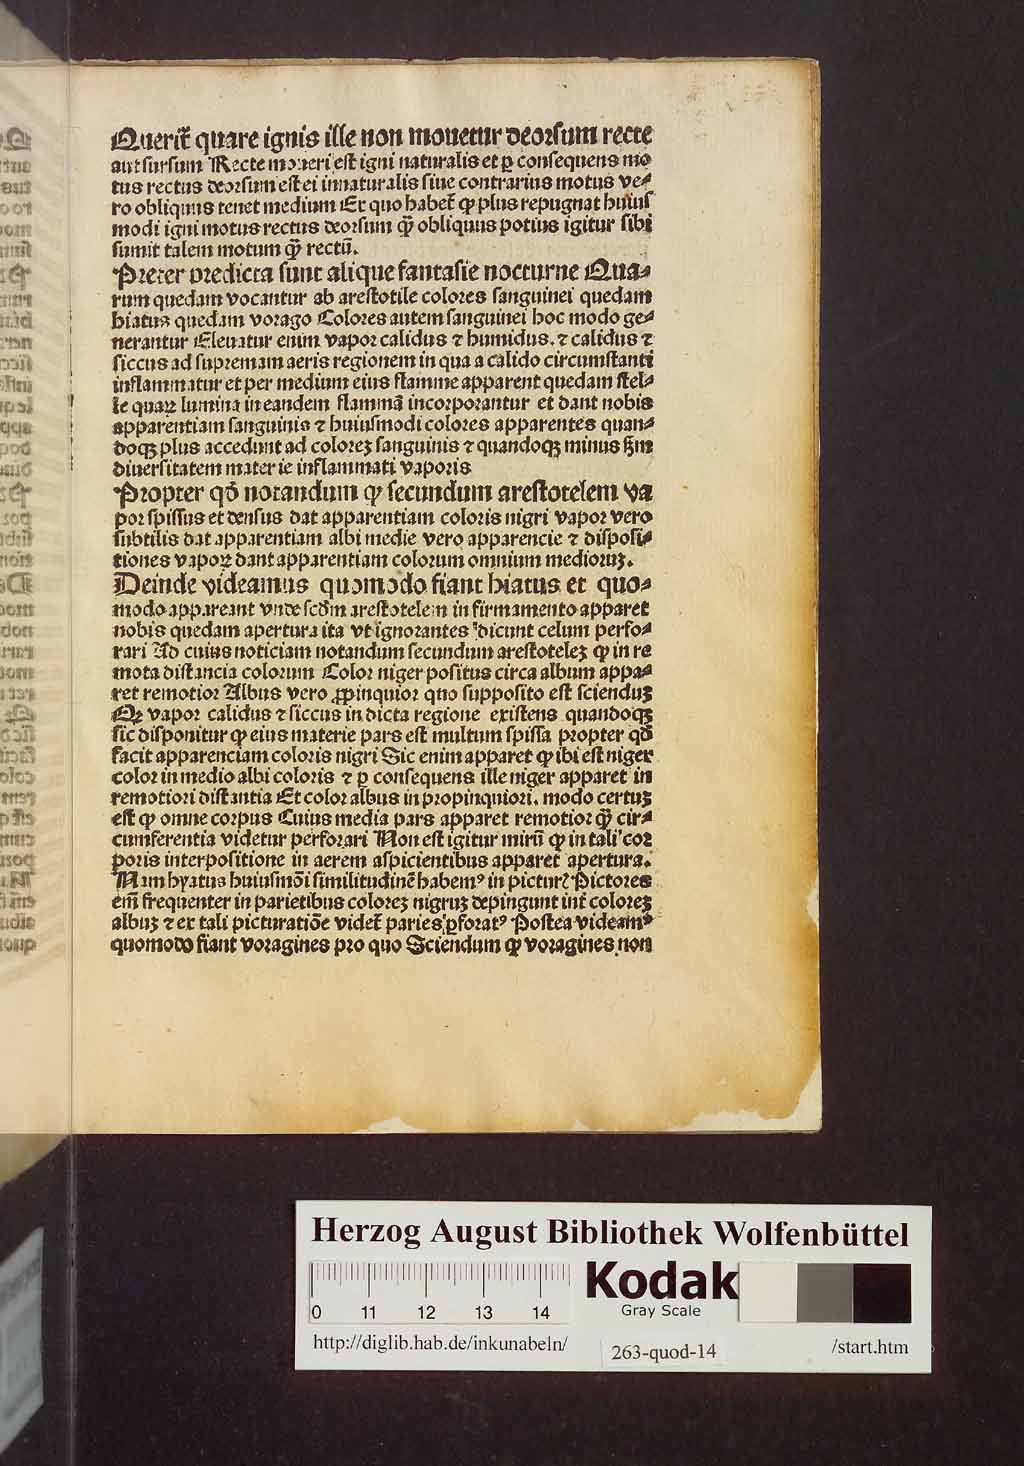 Querit᷑ quare ignis ille non mouetur deorsum recte
aut sursum Recte moueri est igni naturalis et ꝑ consequens mo
tus rectus deorsum est ei innaturalis siue contrarius motus ve⸗
ro obliquus tenet medium Et quo habet᷑ ꝙ plus repugnat huius
modi igni motus rectus deorsum q̄ꝫ obliquus potius igitur sibi
sumit talem motum q̄ꝫ rectū.
Preter predicta sunt alique fantasie nocturne Qua⸗
rum quedam vocantur ab arestotile colores sanguinei quedam
hiatus quedam vorago Colores autem sanguinei hoc modo ge⸗
nerantur Eleuatur enim vapor calidus ⁊ humidus. ⁊ calidus ⁊
siccus ad supremam aeris regionem in qua a calido circumstanti
inflammatur et per medium eius flamme apparent quedam stel⸗
le quaꝝ lumina in eandem flammā incorporantur et dant nobis
apparentiam sanguinis ⁊ huiusmodi colores apparentes quan⸗
doqꝫ plus accedunt ad coloreꝫ sanguinis ⁊ quandoqꝫ minus ẜm
diuersitatem materie inflammati vaporis
Propter qd̄ notandum ꝙ secundum arestotelem va
por spissus et densus dat apparentiam coloris nigri vapor vero
subtilis dat apparentiam albi medie vero apparencie ⁊ disposi⸗
tiones vapoꝝ dant apparentiam colorum omnium medioruꝫ.
Deinde videamus quomodo fiant hiatus et quo⸗
modo appareant vnde scd̄m arestotelem in firmamento apparet
nobis quedam apertura ita vt ignorantes dicunt celum perfo⸗
rari Ad cuius noticiam notandum secundum arestoteleꝫ ꝙ in re
mota distancia colorum Color niger positus circa album appa⸗
ret remotior Albus vero ꝓpinquior quo supposito est scienduꝫ
Qꝫ vapor calidus ⁊ siccus in dicta regione existens quandoqꝫ
sic disponitur ꝙ eius materie pars est multum spissa propter qd̄
facit apparenciam coloris nigri Sic enim apparet ꝙ ibi est niger
color in medio albi coloris ⁊ ꝑ consequens ille niger apparet in
remotiori distantia Et color albus in propinquiori. modo certuꝫ
est ꝙ omne corpus Cuius media pars apparet remotior q̄ꝫ cir⸗
cumferentia videtur perforari Non est igitur mirū ꝙ in tali cor
poris interpositione in aerem aspicientibus apparet apertura.
Nam hyatus huiusmōi similitudinē habemꝰ in pictur᷑ Pictores
em̄ frequenter in parietibus coloreꝫ nigruꝫ depingunt int᷑ coloreꝫ
albuꝫ ⁊ ex tali picturatiōe videt᷑ paries ꝑforatꝰ Postea videamꝰ
quomodo fiant voragines pro quo Sciendum ꝙ voragines non
Herzog August Bibliothek Wolfenbüttel
Kodak
Gray Scale
0 11 12 13 14
http://diglib.hab.de/inkunabeln/ 263-quod-14 /start.htm